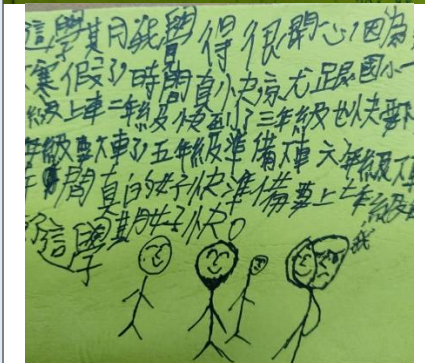 這學期我覺得很開心因為
寒假了時間真小快京尤跟國小一
級上車二年級快到了三年級也快要下
年級要下車了五年級準備下車六年級下車
時間真的好快準備要上七年級
這學期好快。
學
我